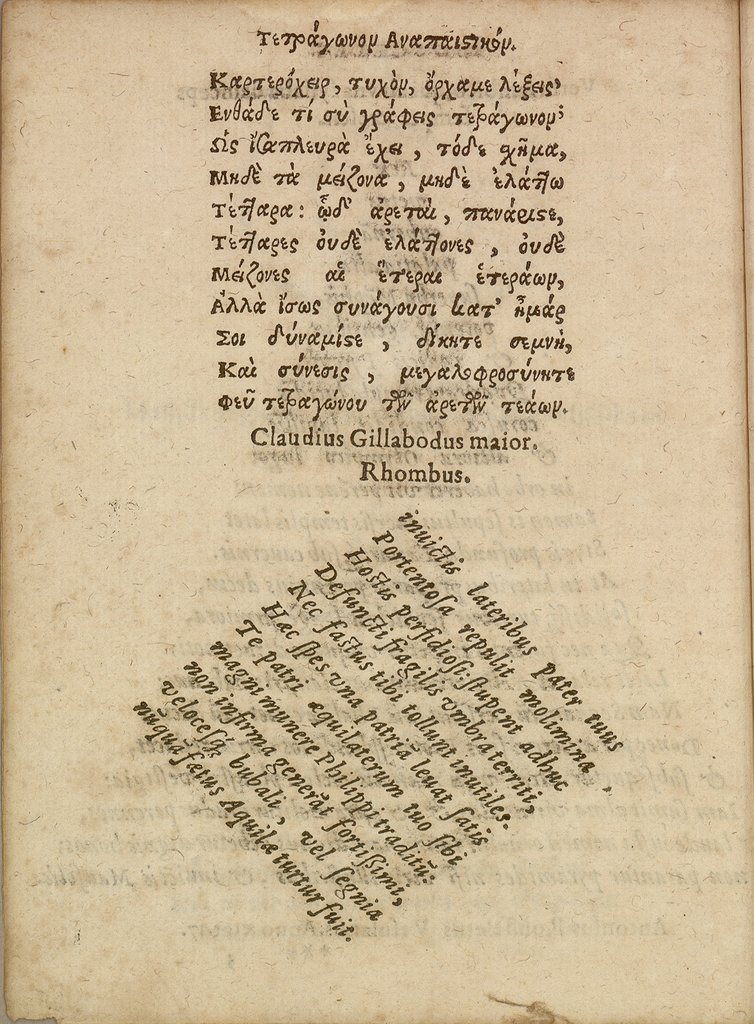 Τετράγωνον Αναπαιστικόν.
Καρτερόχειρ, τυχὸν, ὄρχαμε λέξεις·
Ενθάδε τί σὺ γράφεις τετράγωνον;
Ως ἰσαπλευρὰ ἔχει, τόδε σχῆμα,
Μηδὲ τὰ μείζονα, μηδὲ ἐλάττω
Τέτταρα: ᾧδ' ἀρεταὶ, πανάριστε,
Τέτταρες οὐδὲ ἐλάττονες, οὐδὲ
Μείζονες αἱ ἕτεραι ἑτεράων,
Αλλὰ ἴσως συνάγουσι κατ' ἦμαρ
Σοι δύναμίστε, δίκητε σεμνὴ,
Καὶ σύνεσις, μεγαλοφροσύνητε
Φεῦ τετραγώνου τῶν ἀρετῶν τεάων.
Claudius Gillabodus maior.
Rhombus.
inuictis lateribus Pater tuus
Portentosa repulit molimina.
Hostis perfidiosi: stupent adhuc
Defuncti fragilis vmbraterniti,
Nec fastus tibi tollunt inutiles.
Hac spes vna patria leuat satis
Te patri æquilaterum tuo sibi
magni munere Philippi traditũ.
non infirma generãt fortissimi,
velocesq́ bubali, vel segnia
nuquã fætus Aquilæ turtur fuit.